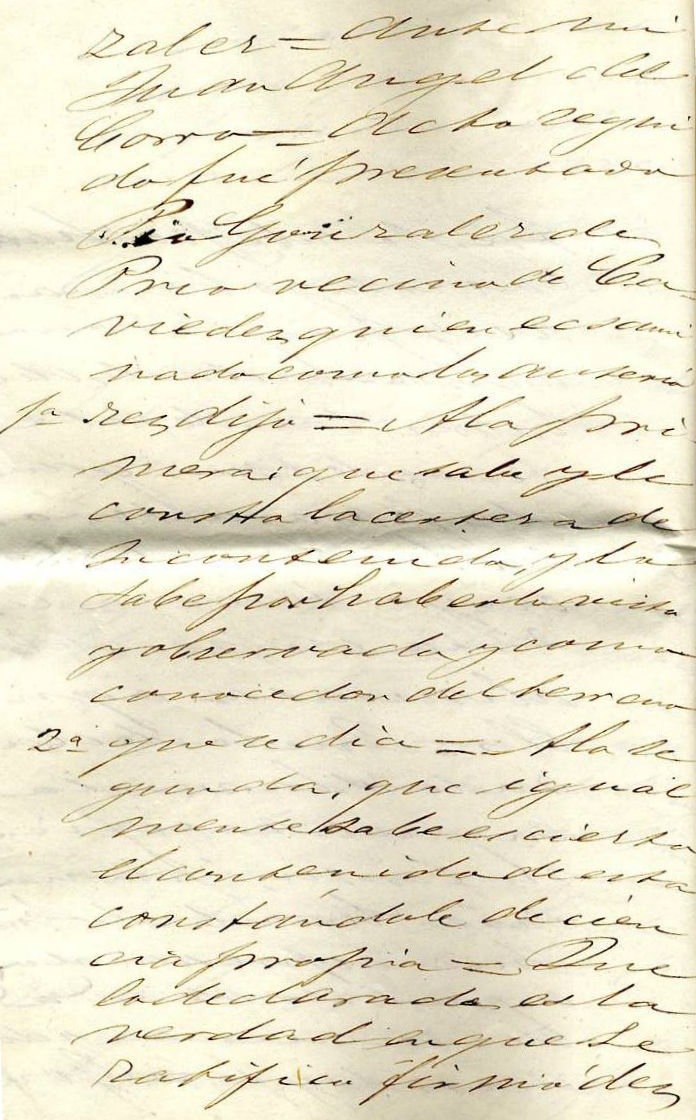 zalez = Ante mi
Juan Angel del
Corro = Acto segui
do fué presentado
Pio Gonzalez de
Prio vecino de Ca-
viedes, quien ecsami
nado como los anterio
1ª res, dijo = A la pri
mera: que sabe y le
consta la certeza de
su contenido, y lo
sabe por haberlo visto
y observado y como
conocedor del terreno
2ª que se dia = A la se
gunda, que igual
mente sabe es cierto
el contenido de esta
constándole de cien
cia propia = Que
lo declarado es la
verdad en que se
ratifica firmó des